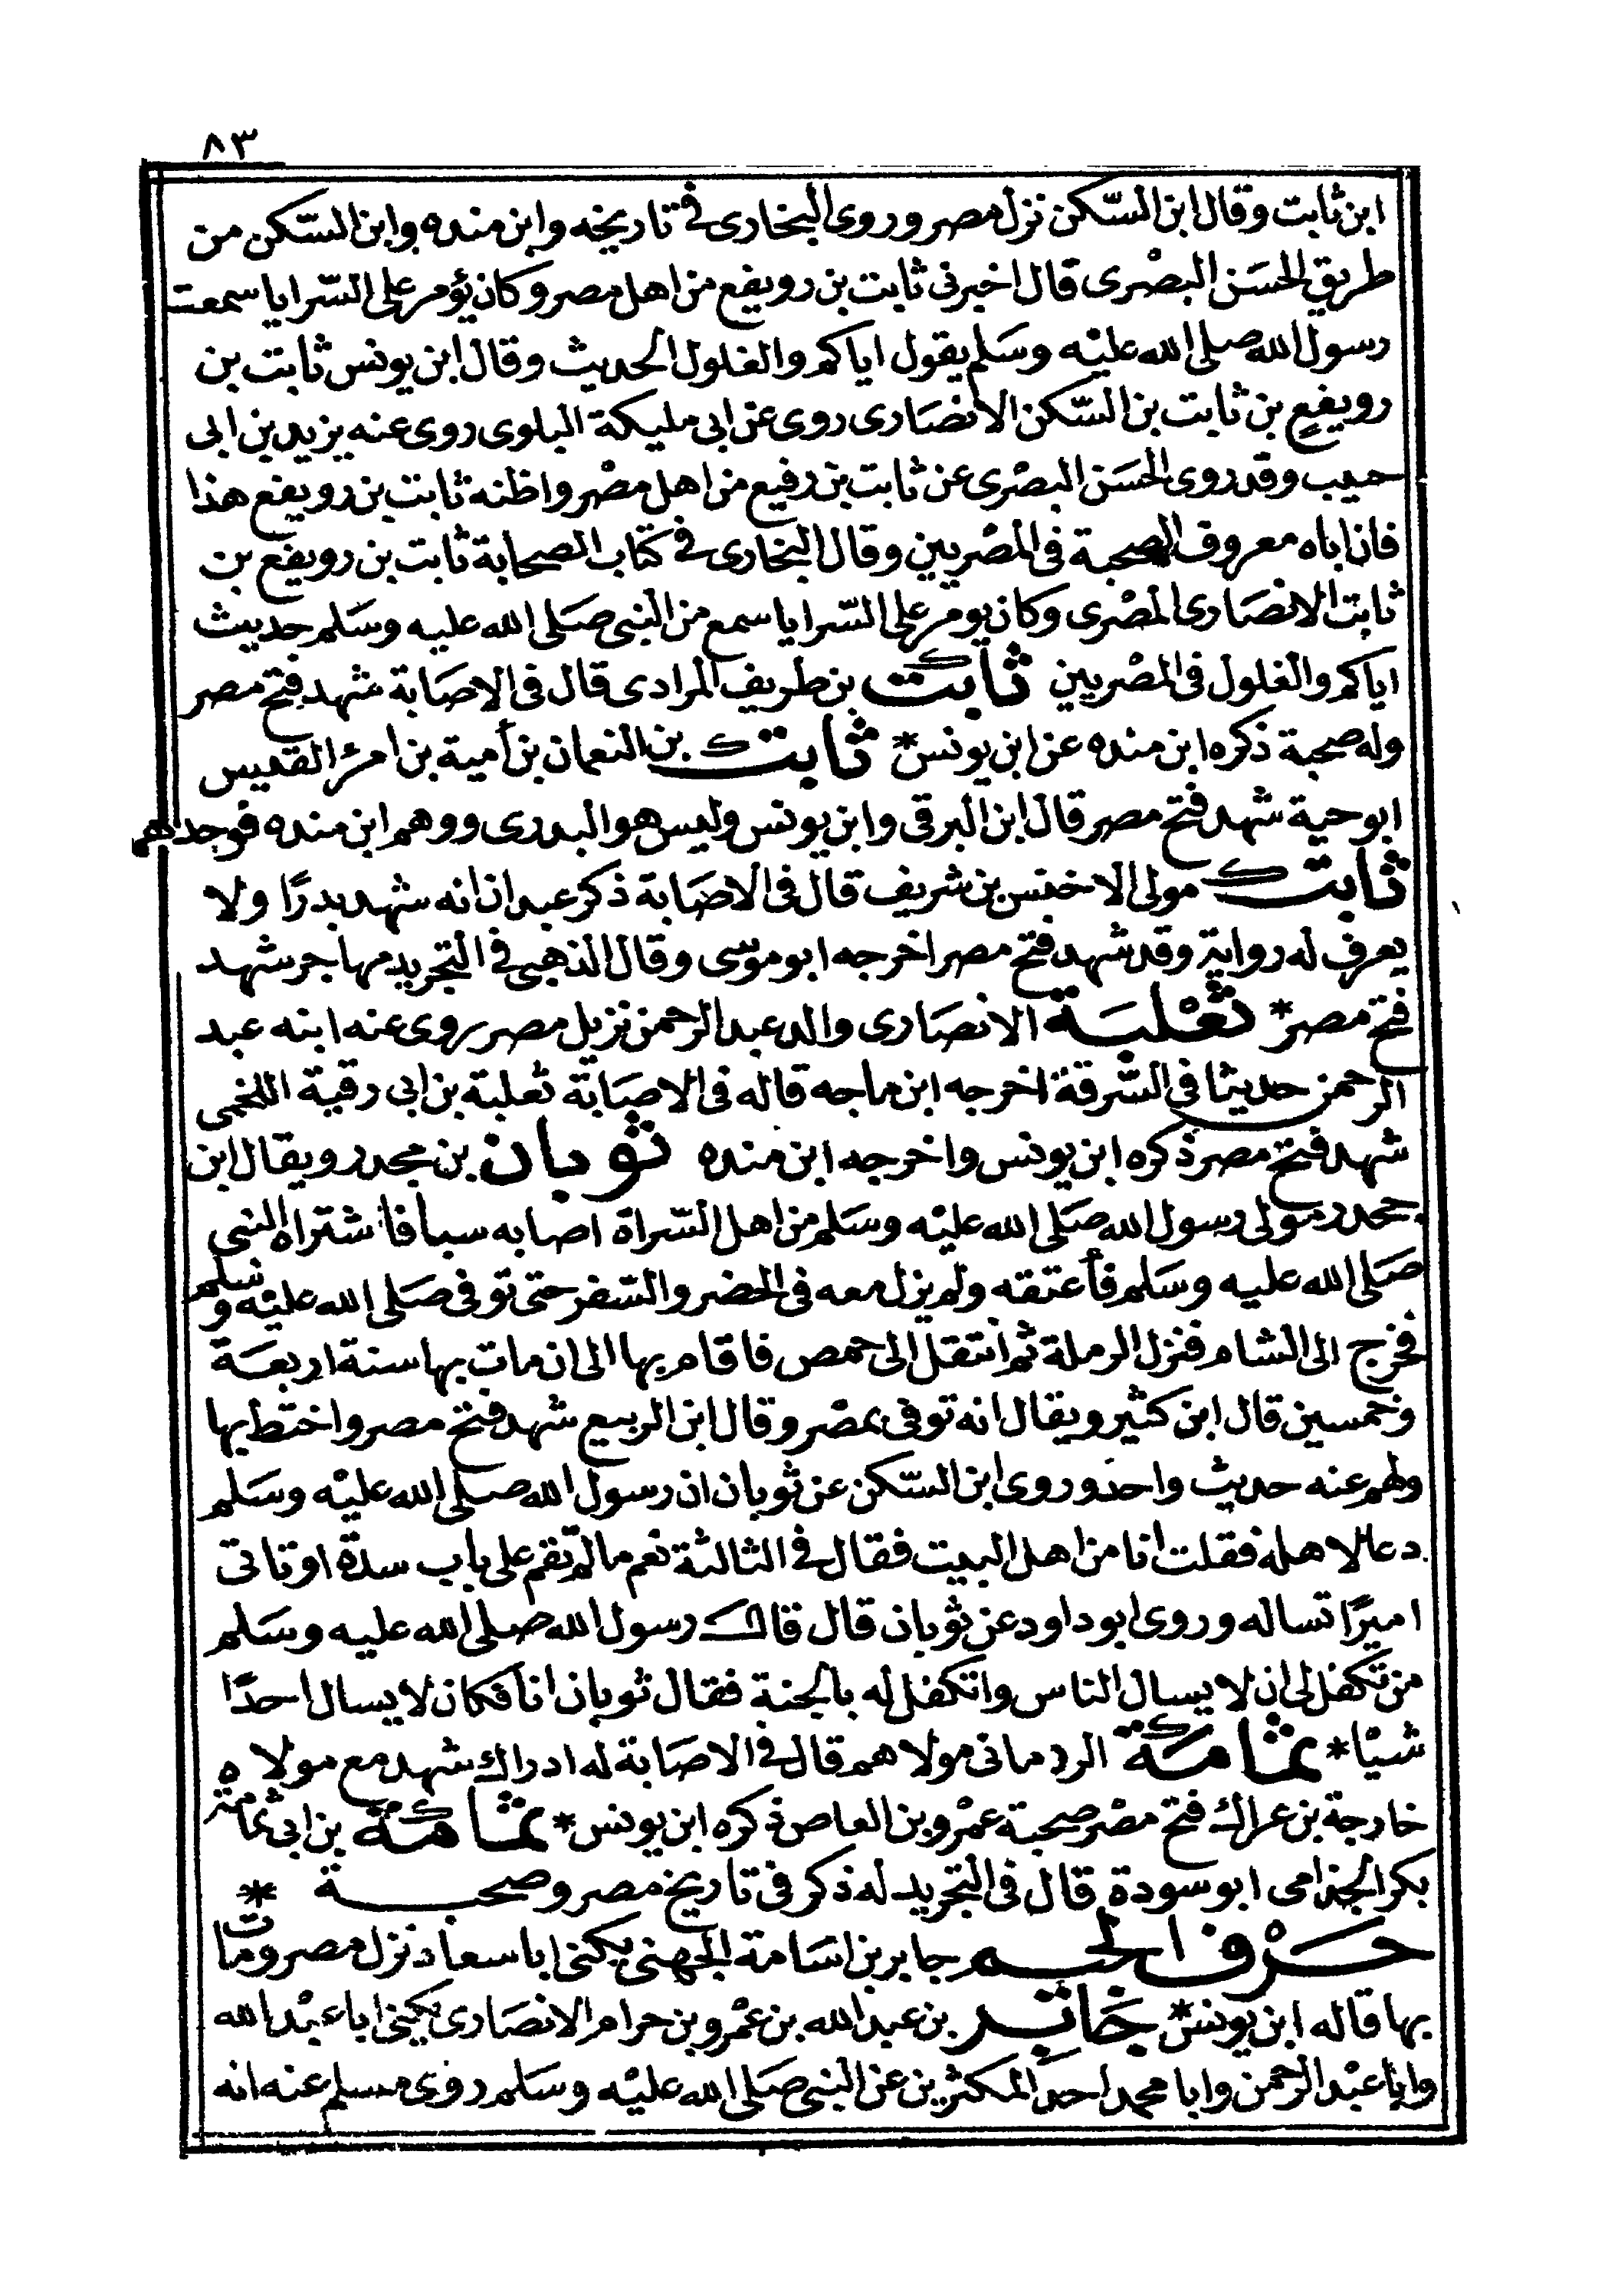 ٨٣
ابن ثابت وقال ابن السّكن نزل مصر وروى البخارى فى تاريخه وابن منده وابن السّكن من
طريق الحسَن البصْرى قال اخبرنى ثابت بن رويفع من اهل مصر وكان يؤمر على السّرايا سمعت
رسول الله صلى الله عليْه وسَلم يقول اياكم والغلول الحديث وقال ابن يونس ثابت بن
رويفع بن ثابت بن السّكن الانصَارى روى عن ابى مليكة البلوى روى عنه يزيد بن ابى
حبيب وقد روى الحسَن البصْرى عن ثابت بن رفيع من اهل مصْر واظنه ثابت بن رويفع هذا
فان اباه معروف الصحبة فى المصْريين وقال البخارى فى كتاب الصحابة ثابت بن رويفع بن
ثابت الانصَارى المصْرى وكان يومر على السّرايا سمع من النبى صَلى الله عليه وسَلم حديث
اياكم والغلول فى المصْريين ثابت بن طريف المرادى قال فى الاصَابة شهد فتح مصر
وله صحبة ذكره ابن منده عن ابن يونس* ثابت بن النعمان بن أمية بن امرئ القيس
ابو حية شهد فتح مصر قال ابن البرقى وابن يونس وليس هو البدرى ووهم ابن منده فوحدهم
ثابت مولى الاخنس بن شريف قال فى الاصَابة ذكر عبدان انه شهد بدرًا ولا
يعرف له رواية وقد شهد فتح مصر اخرجه ابو موسى وقال الذهبى فى التجريد مهاجر شهد
فتح مصر* ثعْلبَة الانصَارى والد عبد الرحمن نزيل مصر روى عنه ابنه عبد
الرحمن حديثا فى السّرقة اخرجه ابن ماجه قاله فى الاصَابة ثعلبة بن ابى رقية اللخمى
شهد فتح مصر ذكره ابن يونس واخرجه ابن منده ثوبان بن مجدر ويقال ابن
جحدر مولى رسول الله صَلى الله عليْه وسَلم من اهل السّراة اصابه سبا فاشتراه النبى
صَلى الله عليه وسَلم فأعتقه ولم يزل معه فى الحضر والسّفر حتى توفى صَلى الله عليْه وسلم
فخرج الى الشام فنزل الرملة ثم انتقل الى حمص فاقام بها الى ان مات بها سنة اربعَة
وخمسين قال ابن كثير ويقال انه توفى بمصْر وقال ابن الربيع شهد فتح مصر واختط بها
ولهم عنه حديث واحد وروى ابن السّكن عن ثوبان ان رسول الله صلى الله عليْه وسَلم
دعا لاهله فقلت انا من اهل البيت فقال فى الثالثة نعم ما لم تقم على باب سدة او تاتى
اميرًا تساله وروى ابو داود عن ثوبان قال قال رسول الله صلى الله عليه وسَلم
من تكفل لى ان لا يسال الناس واتكفل له بالجنة فقال ثوبان انا فكان لا يسال احدًا
شيًا* ثمامَة الردمانى مولاهم قال فى الاصَابة له ادراك شهد مع مولاه
خارجة بن عراك فتح مصْر صحبة عمْرو بن العاص ذكره ابن يونس* ثمامَة بن ابى ثمامة
بكر الجذامى ابو سودة قال فى التجريد له ذكر فى تاريخ مصر وصحبة *
حَرْف الجيم جابر بن اسَامة الجهنى يكنى ابا سعاد نزل مصر ومات
بها قاله ابن يونس* جَابر بن عبد الله بن عمْرو بن حرام الانصَارى يكنى ابا عبْد الله
وابا عبْد الرحمن وابا محمد احد المكثرين عن النبى صَلى الله عليْه وسَلم روى مسلم عنه انه